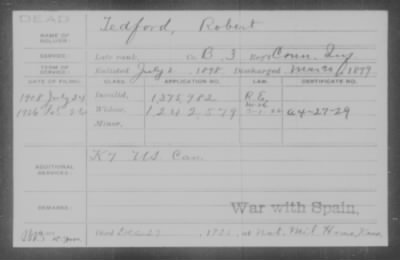 DEAD
NAME OF SOLDIER:
Tedford, Robert
SERVICE:
Late rank, Co. B, 3 Reg't Conn. Inf
TERM OF SERVICE:
Enlisted July 2, 1898 Discharged Mar 20, 1899
DATE OF FILING. CLASS. APPLICATION NO. LAW. CERTIFICATE NO.
1908 July 24 Invalid, 1,375,782
1926 Widow, 1242579 A-4-27-29
Minor,
ADDITIONAL SERVICES:
K 7 U.S. Cav.
REMARKS:
War with Spain,
Died at Nat. Mil. Home, Kans.